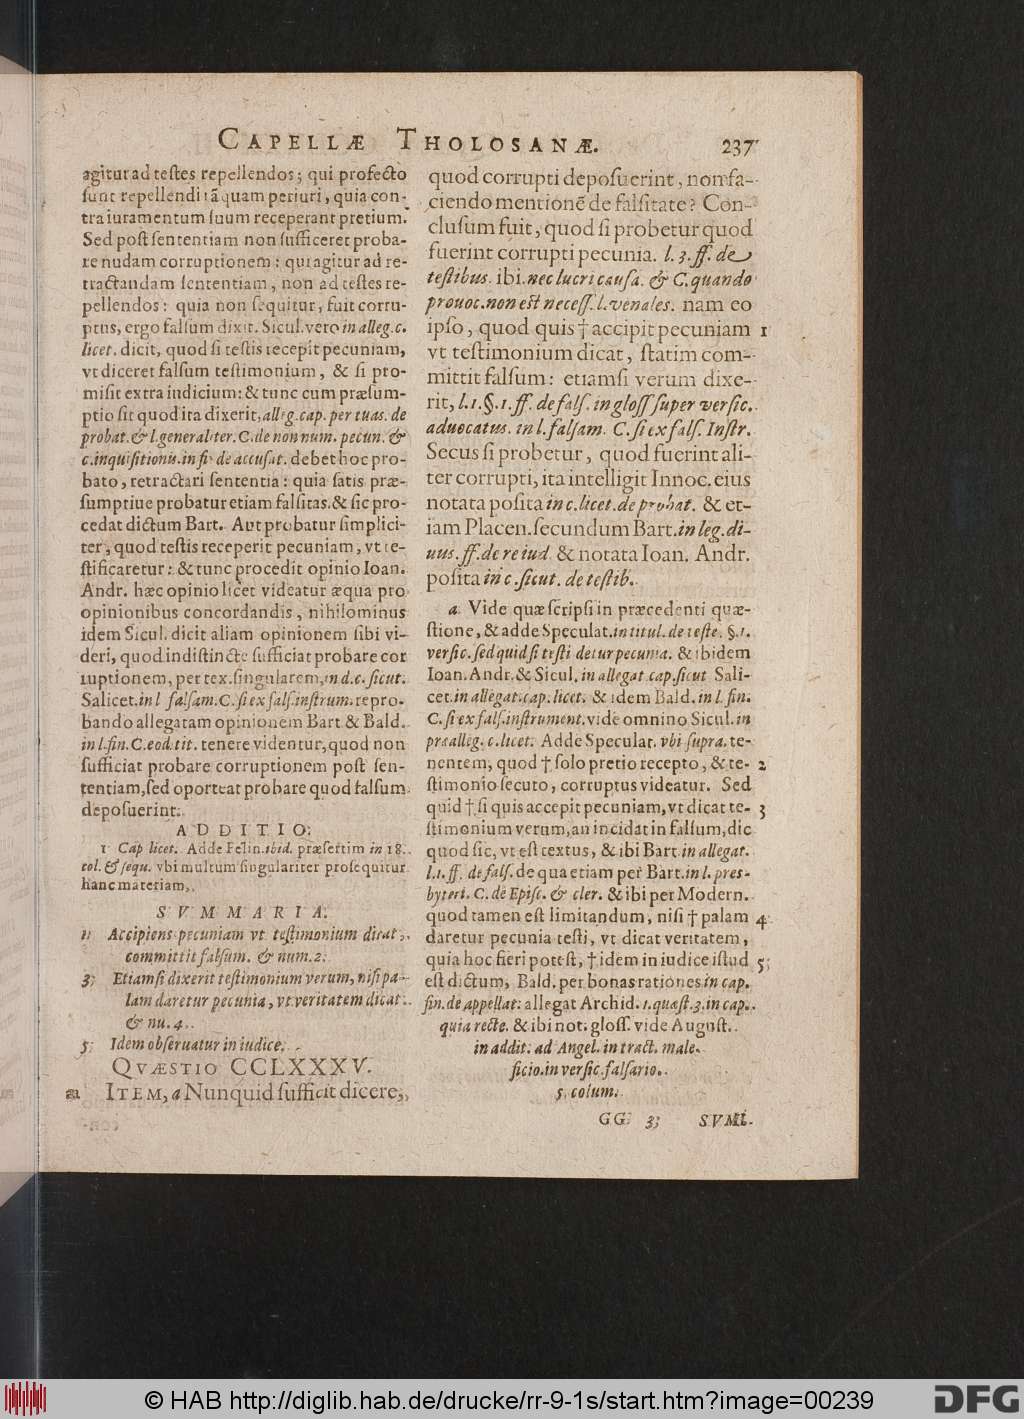 CAPELLÆ THOLOSANÆ. 237
agitur ad testes repellendos; qui profecto
sunt repellendi tãquam periuri, quia con-
tra iuramentum suum receperant pretium.
Sed post sententiam non sufficeret proba-
re nudam corruptionem: qui agitur ad re-
tractandam sententiam, non ad testes re-
pellendos: quia non sequitur, fuit corru-
ptus, ergo falsum dixit. Sicul. vero in alleg. c.
licet. dicit, quod si testis recepit pecuniam,
vt diceret falsum testimonium, & si pro-
misit extra iudicium: & tunc cum præsum-
ptio sit quod ita dixerit, alleg. cap. per tuas. de
probat. & l. generaliter. C. de non num. pecun. &
c. inquisitionis. in fi. de accusat. debet hoc pro-
bato, retractari sententia: quia satis præ-
sumptiue probatur etiam falsitas. & sic pro-
cedat dictum Bart. Aut probatur simplici-
ter, quod testis receperit pecuniam, vt te-
stificaretur: & tunc procedit opinio Ioan.
Andr. hæc opinio licet videatur æqua pro
opinionibus concordandis, nihilominus
idem Sicul. dicit aliam opinionem sibi vi-
deri, quod indistincte sufficiat probare cor
ruptionem, per tex. singularem, in d. c. sicut.
Salicet. in l falsam. C. si ex fals. instrum. repro-
bando allegatam opinionem Bart. & Bald.
in l. fin. C. eod. tit. tenere videntur, quod non
sufficiat probare corruptionem post sen-
tentiam, sed oporteat probare quod falsum
deposuerint.
ADDITIO.
1 Cap licet. Adde Felin. ibid. præsertim in 18.
col. & sequ. vbi multum singulariter prosequitur
hanc materiam,
SVMMARIA.
1 Accipiens pecuniam vt testimonium dicat,
committit falsum. & num. 2.
3 Etiamsi dixerit testimonium verum, nisi pa-
lam daretur pecunia, vt veritatem dicat.
& nu. 4.
5 Idem obseruatur in iudice.
QVÆSTIO CCLXXXV.
a ITEM, a Nunquid sufficit dicere,
quod corrupti deposuerint, non fa-
ciendo mentionẽ de falsitate? Con-
clusum fuit, quod si probetur quod
fuerint corrupti pecunia. l. 3. ff. de
testibus. ibi. nec lucri causa. & C. quando
prouoc. non est necess. l. venales. nam eo
ipso, quod quis † accipit pecuniam 1
vt testimonium dicat, statim com-
mittit falsum: etiamsi verum dixe-
rit, l. 1. §. 1. ff. de fals. in gloss super versic.
aduocatus. in l. falsam. C. si ex fals. Instr.
Secus si probetur, quod fuerint ali-
ter corrupti, ita intelligit Innoc. eius
notata posita in c. licet. de probat. & et-
iam Placen. secundum Bart. in leg. di-
uus. ff. de re iud. & notata Ioan. Andr.
posita in c. sicut. de testib.
a Vide quæ scripsi in præcedenti quæ-
stione, & adde Speculat. in titul. de teste. §. 1.
versic. sed quid si testi detur pecunia. & ibidem
Ioan. Andr. & Sicul. in allegat. cap. sicut Sali-
cet. in allegat. cap. licet. & idem Bald. in l. fin.
C. si ex fals. instrument. vide omnino Sicul. in
præalleg. c. licet. Adde Speculat. vbi supra. te-
nentem, quod † solo pretio recepto, & te- 2
stimonio secuto, corruptus videatur. Sed
quid † si quis accepit pecuniam, vt dicat te- 3
stimonium verum, an incidat in falsum, dic
quod sic, vt est textus, & ibi Bart. in allegat.
l. 1. ff. de fals. de qua etiam per Bart. in l. pres-
byteri. C. de Episc. & cler. & ibi per Modern.
quod tamen est limitandum, nisi † palam 4
daretur pecunia testi, vt dicat veritatem,
quia hoc fieri potest, † idem in iudice istud 5
est dictum, Bald. per bonas rationes in cap.
fin. de appellat. allegat Archid. 1. quæst. 3. in cap.
quia recte. & ibi not. gloss. vide August.
in addit. ad Angel. in tract. male-
ficio. in versic. falsario.
5. colum.
GG 3 SVM-
© HAB http://diglib.hab.de/drucke/rr-9-1s/start.htm?image=00239
DFG